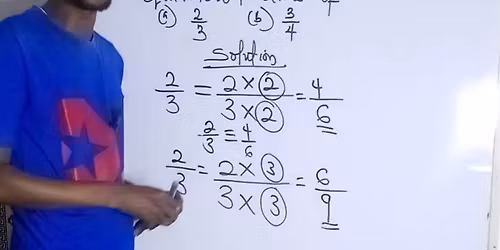 of
(a) 2/3 (b) 3/4
Solution
2/3 = 2 × 2 / 3 × 2 = 4/6
2/3 = 4/6
2/3 = 2 × 3 / 3 × 3 = 6/9